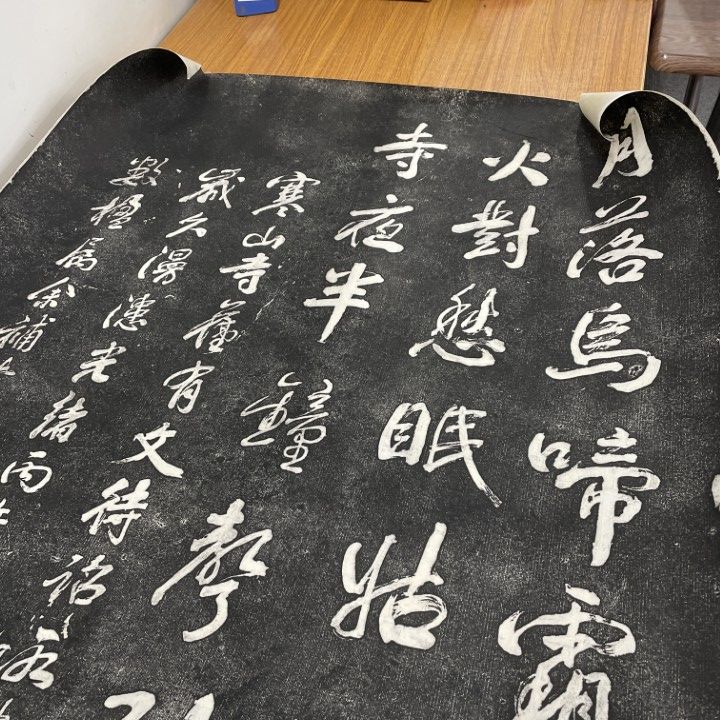 月落烏啼霜
火對愁眠姑
寺夜半鐘聲
寒山寺舊有文待詔所
歲久漫漶光緒丙
數楹屬余補